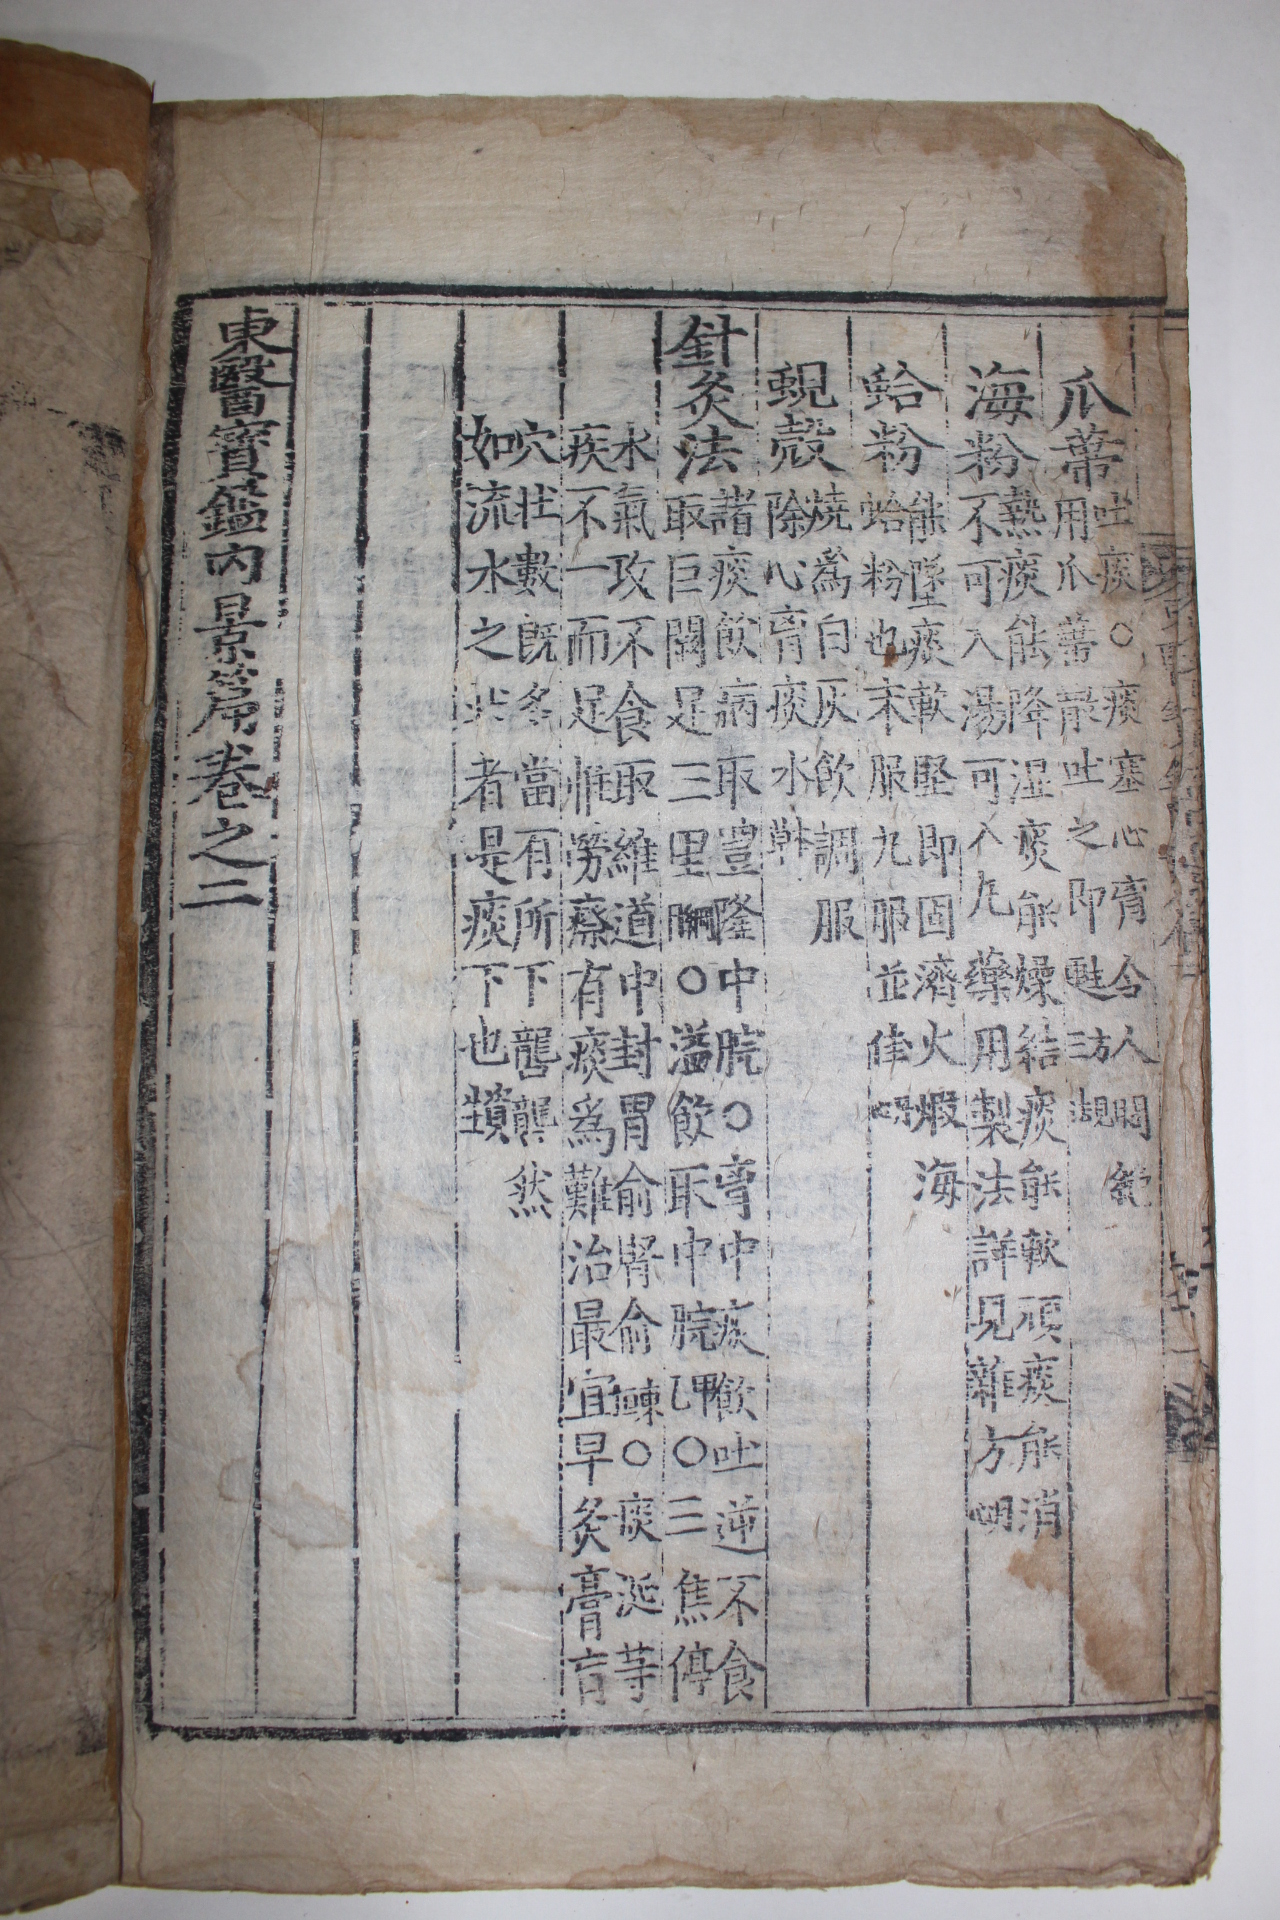 瓜蔕 吐痰○痰塞心胷令人悶絶
用瓜蔕散吐之即甦
海粉 熱痰能降湿痰能燥結痰能軟頑痰能消
不可入湯可入丸藥用製法詳見雜方
蛤粉 能墜痰軟堅即固濟火煅海
蛤粉也末服丸服並佳
蜆殼 燒爲白灰飲調服
除心胷痰水
針灸法 諸痰飲病取豊隆中脘○胷中痰飲吐逆不食
取巨闕足三里綱目○溢飲取中脘甲乙○三焦停
水氣攻不食取維道中封胃俞腎俞東垣○痰涎等
疾不一而足惟勞瘵有痰爲難治最宜早灸膏肓
穴壮數既多當有所下礱礱然
如流水之状者是痰下也資生
東醫寶鑑內景篇卷之二